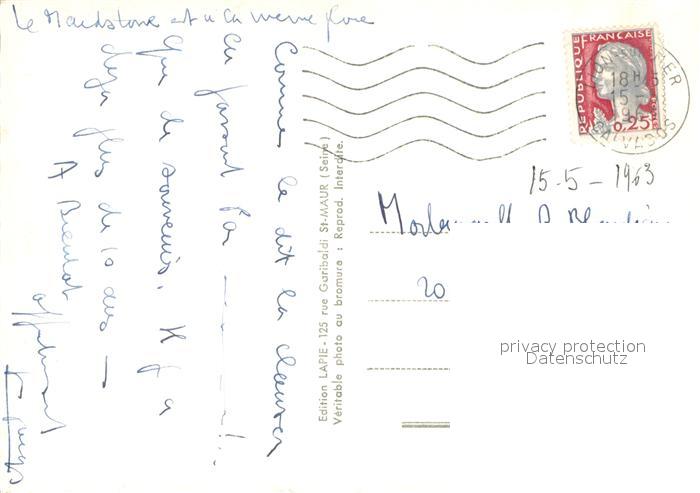 Le Maidstone est à la même place
Comme le dit la chanson
en passant par
que de souvenirs. Il y a
déjà plus de 10 ans —
A Bientôt
Edition LAPIE - 125 rue Garibaldi St-MAUR (Seine)
Véritable photo au bromure : Reprod. Interdite.
REPUBLIQUE FRANÇAISE
0,25
18H15
15-5
CALVADOS
15-5-1963
20
privacy protection
Datenschutz